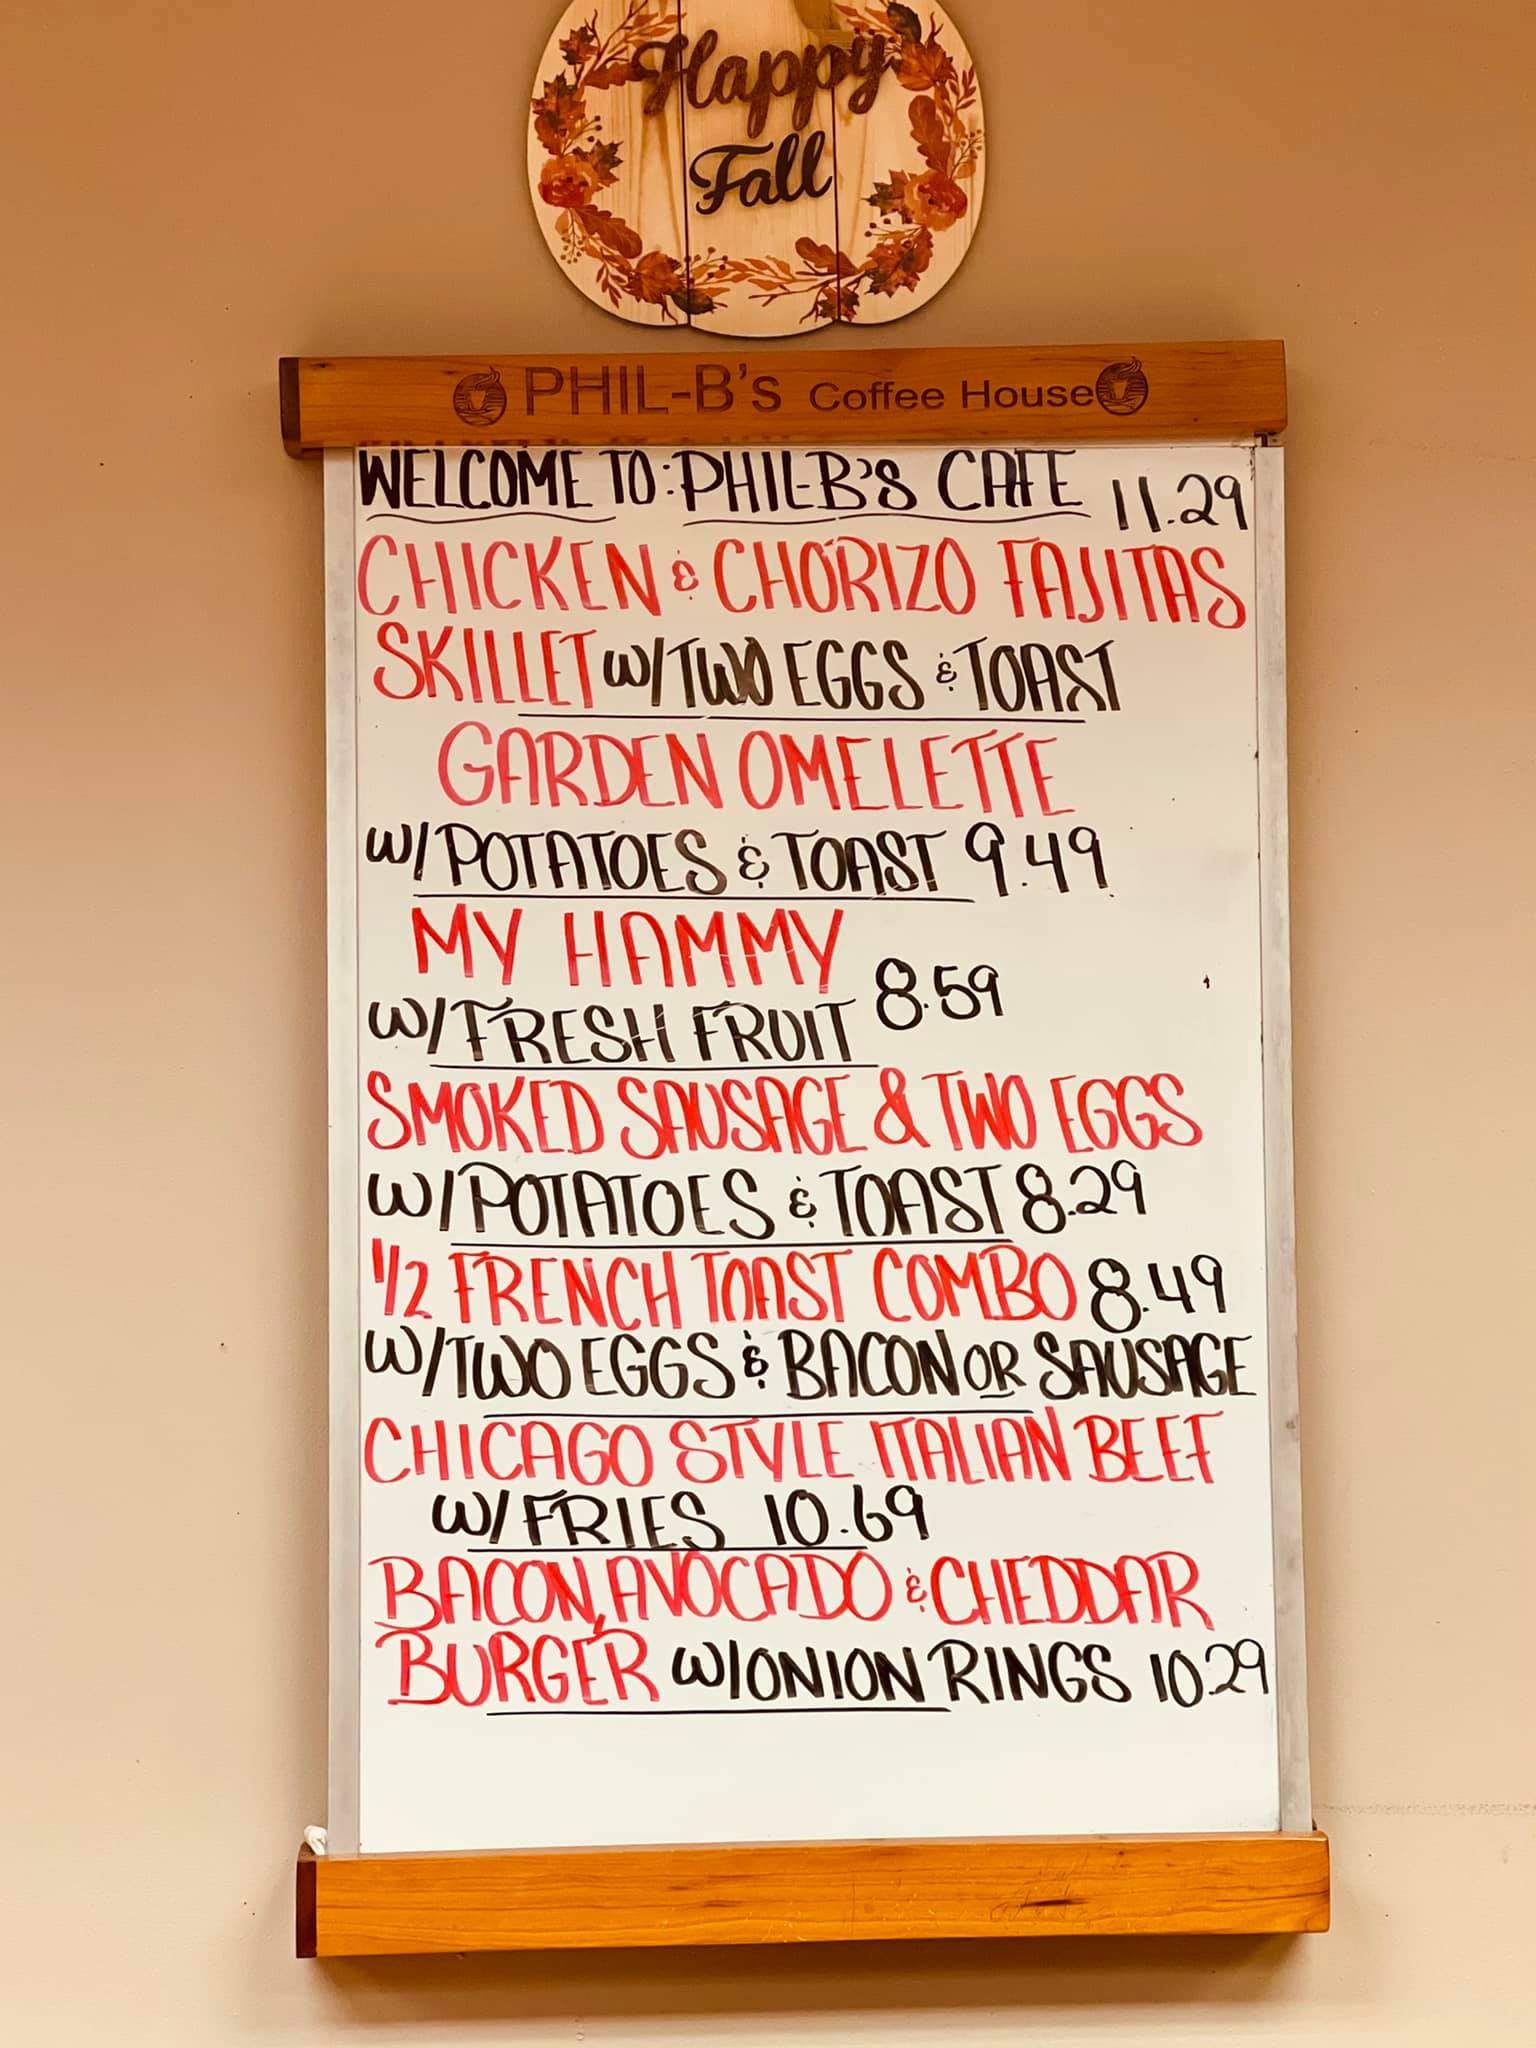 Happy
Fall
PHIL-B's Coffee House
WELCOME TO: PHIL-B'S CAFE 11.29
CHICKEN & CHORIZO FAJITAS
SKILLET W/TWO EGGS & TOAST
GARDEN OMELETTE
W/POTATOES & TOAST 9.49
MY HAMMY
W/FRESH FRUIT 8.59
SMOKED SAUSAGE & TWO EGGS
W/POTATOES & TOAST 8.29
1/2 FRENCH TOAST COMBO 8.49
W/TWO EGGS & BACON OR SAUSAGE
CHICAGO STYLE ITALIAN BEEF
W/FRIES 10.69
BACON, AVOCADO & CHEDDAR
BURGER W/ONION RINGS 10.29